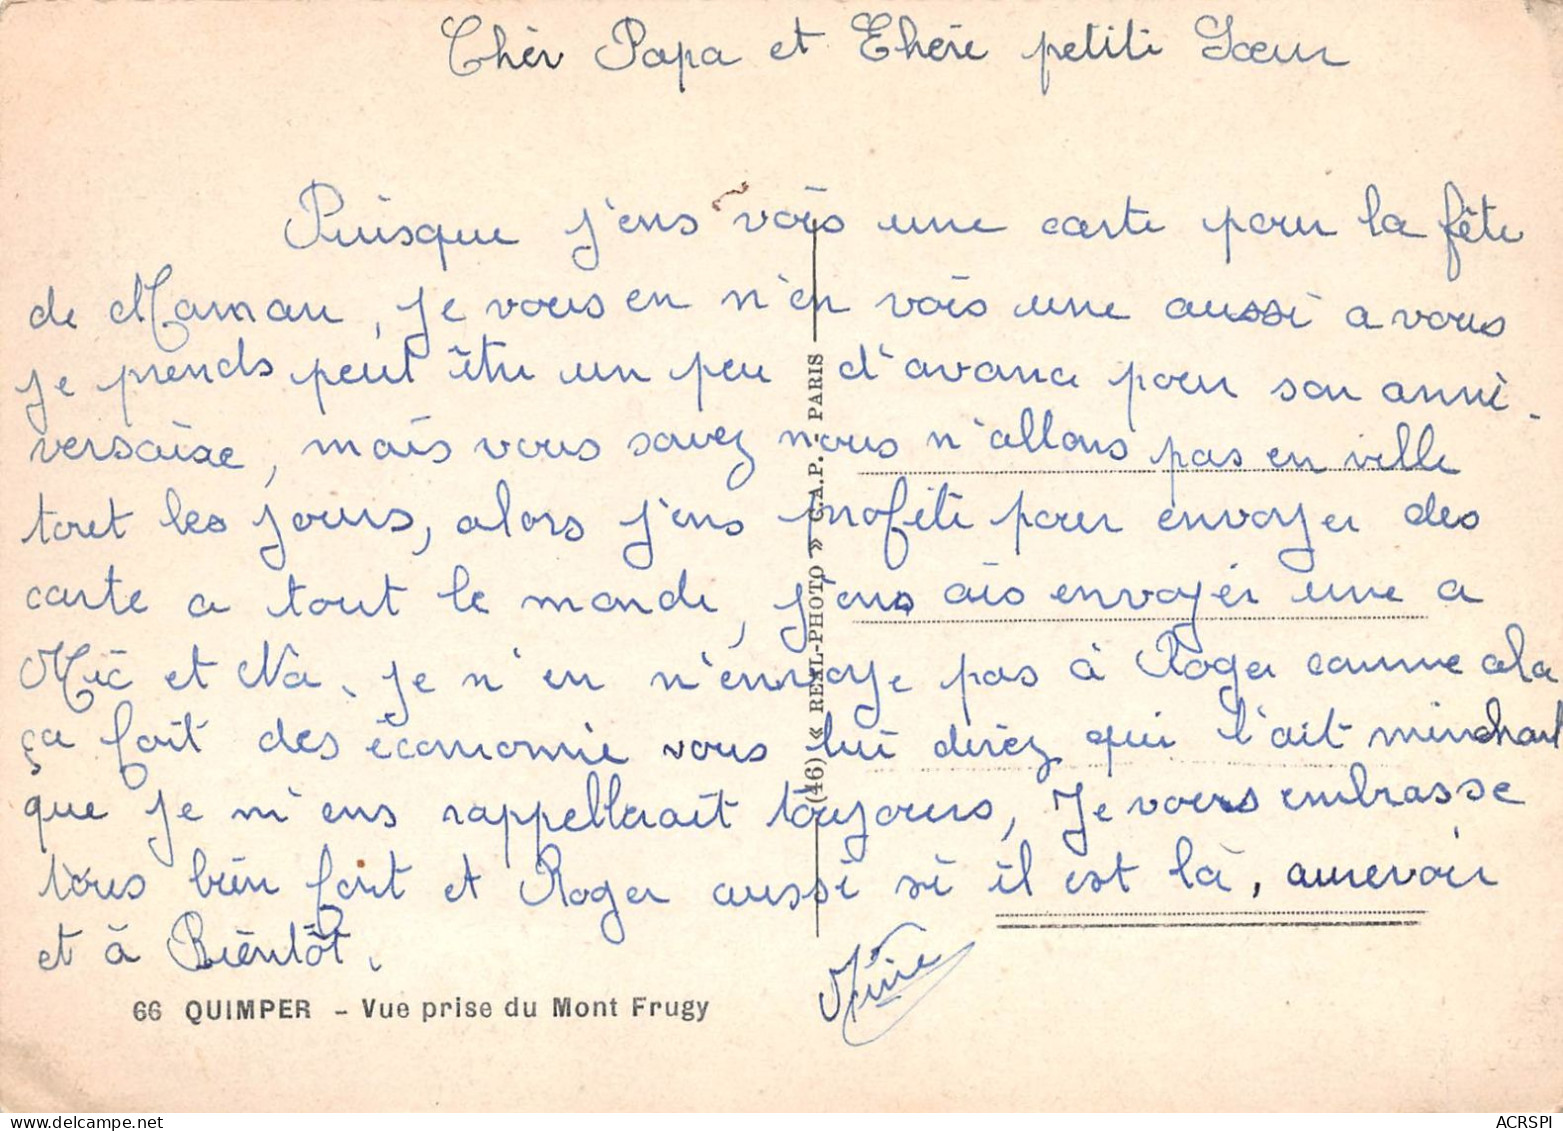 Chèr Papa et Chére petite Soeur
Puisque j'ens vois une carte pour la fête
de Maman, je vous en n'en vois une aussi a vous
je prends peut être un peu d'avance pour son anni-
versaire, mais vous savez nous n'allons pas en ville
tout les jours, alors j'ens profite pour envoyer des
carte a tout le monde, j'ens ais envoyér une a
Mic et Na. je n'en n'envoye pas à Roger comme ala
ça fait des économie vous lui direz qui l'ait
que je m'ens rappellerait toujours, Je vous embrasse
tous bien fort et Roger aussi si il est là, aurevoir
et à Bientôt.
66 QUIMPER - Vue prise du Mont Frugy
(46) « REAL-PHOTO » C.A.P. - PARIS
ACRSPI